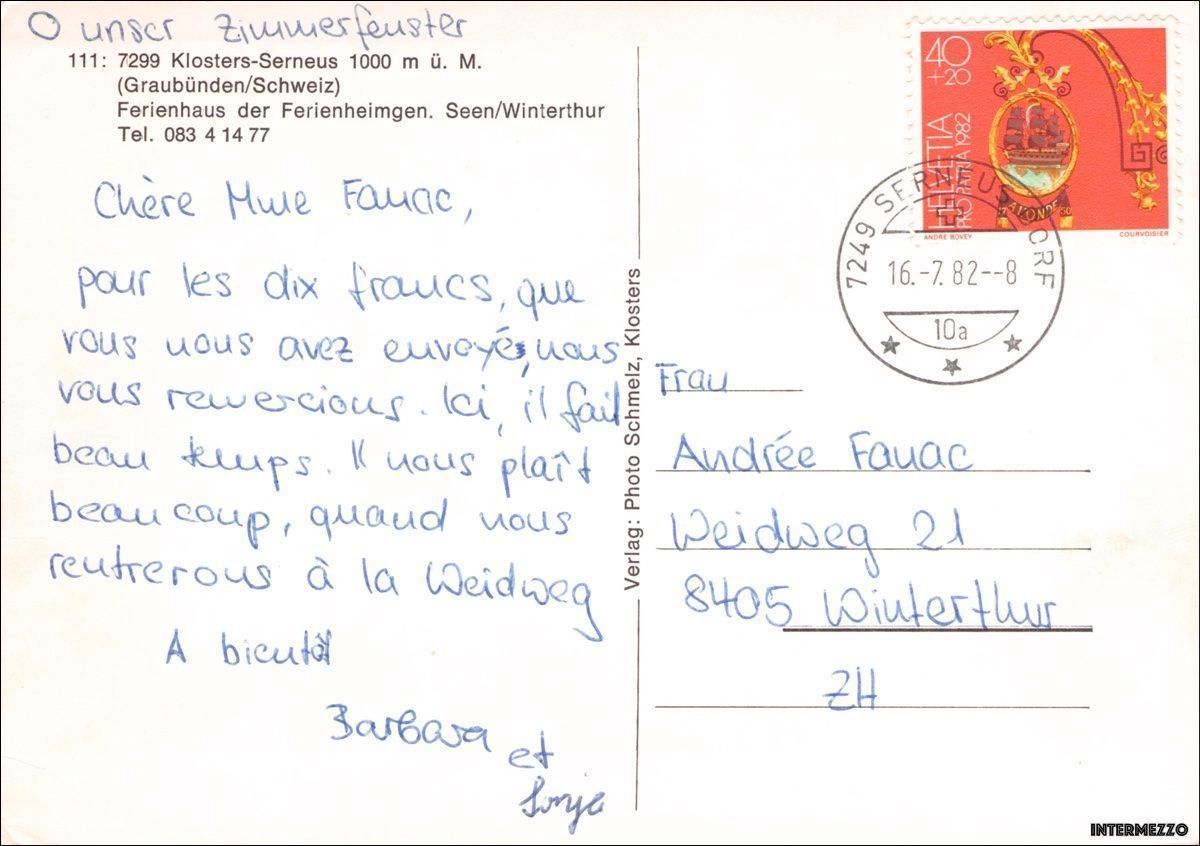 O unser Zimmerfenster
111: 7299 Klosters-Serneus 1000 m ü. M.
(Graubünden/Schweiz)
Ferienhaus der Ferienheimgen. Seen/Winterthur
Tel. 083 4 14 77
Chère Mme Fanac,
pour les dix francs, que
vous nous avez envoyé, nous
vous remercions. Ici, il fait
beau temps. Il nous plaît
beaucoup, quand nous
rentrerons à la Weidweg
A bientôt
Barbara et
Sonja
Verlag: Photo Schmelz, Klosters
40
+20
HELVETIA
PRO PATRIA 1982
ANDRE BOVEY
COURVOISIER
7249 SERNEUS DORF
16.-7.82--8
10a
Frau
Andrée Fanac
Weidweg 21
8405 Winterthur
ZH
INTERMEZZO